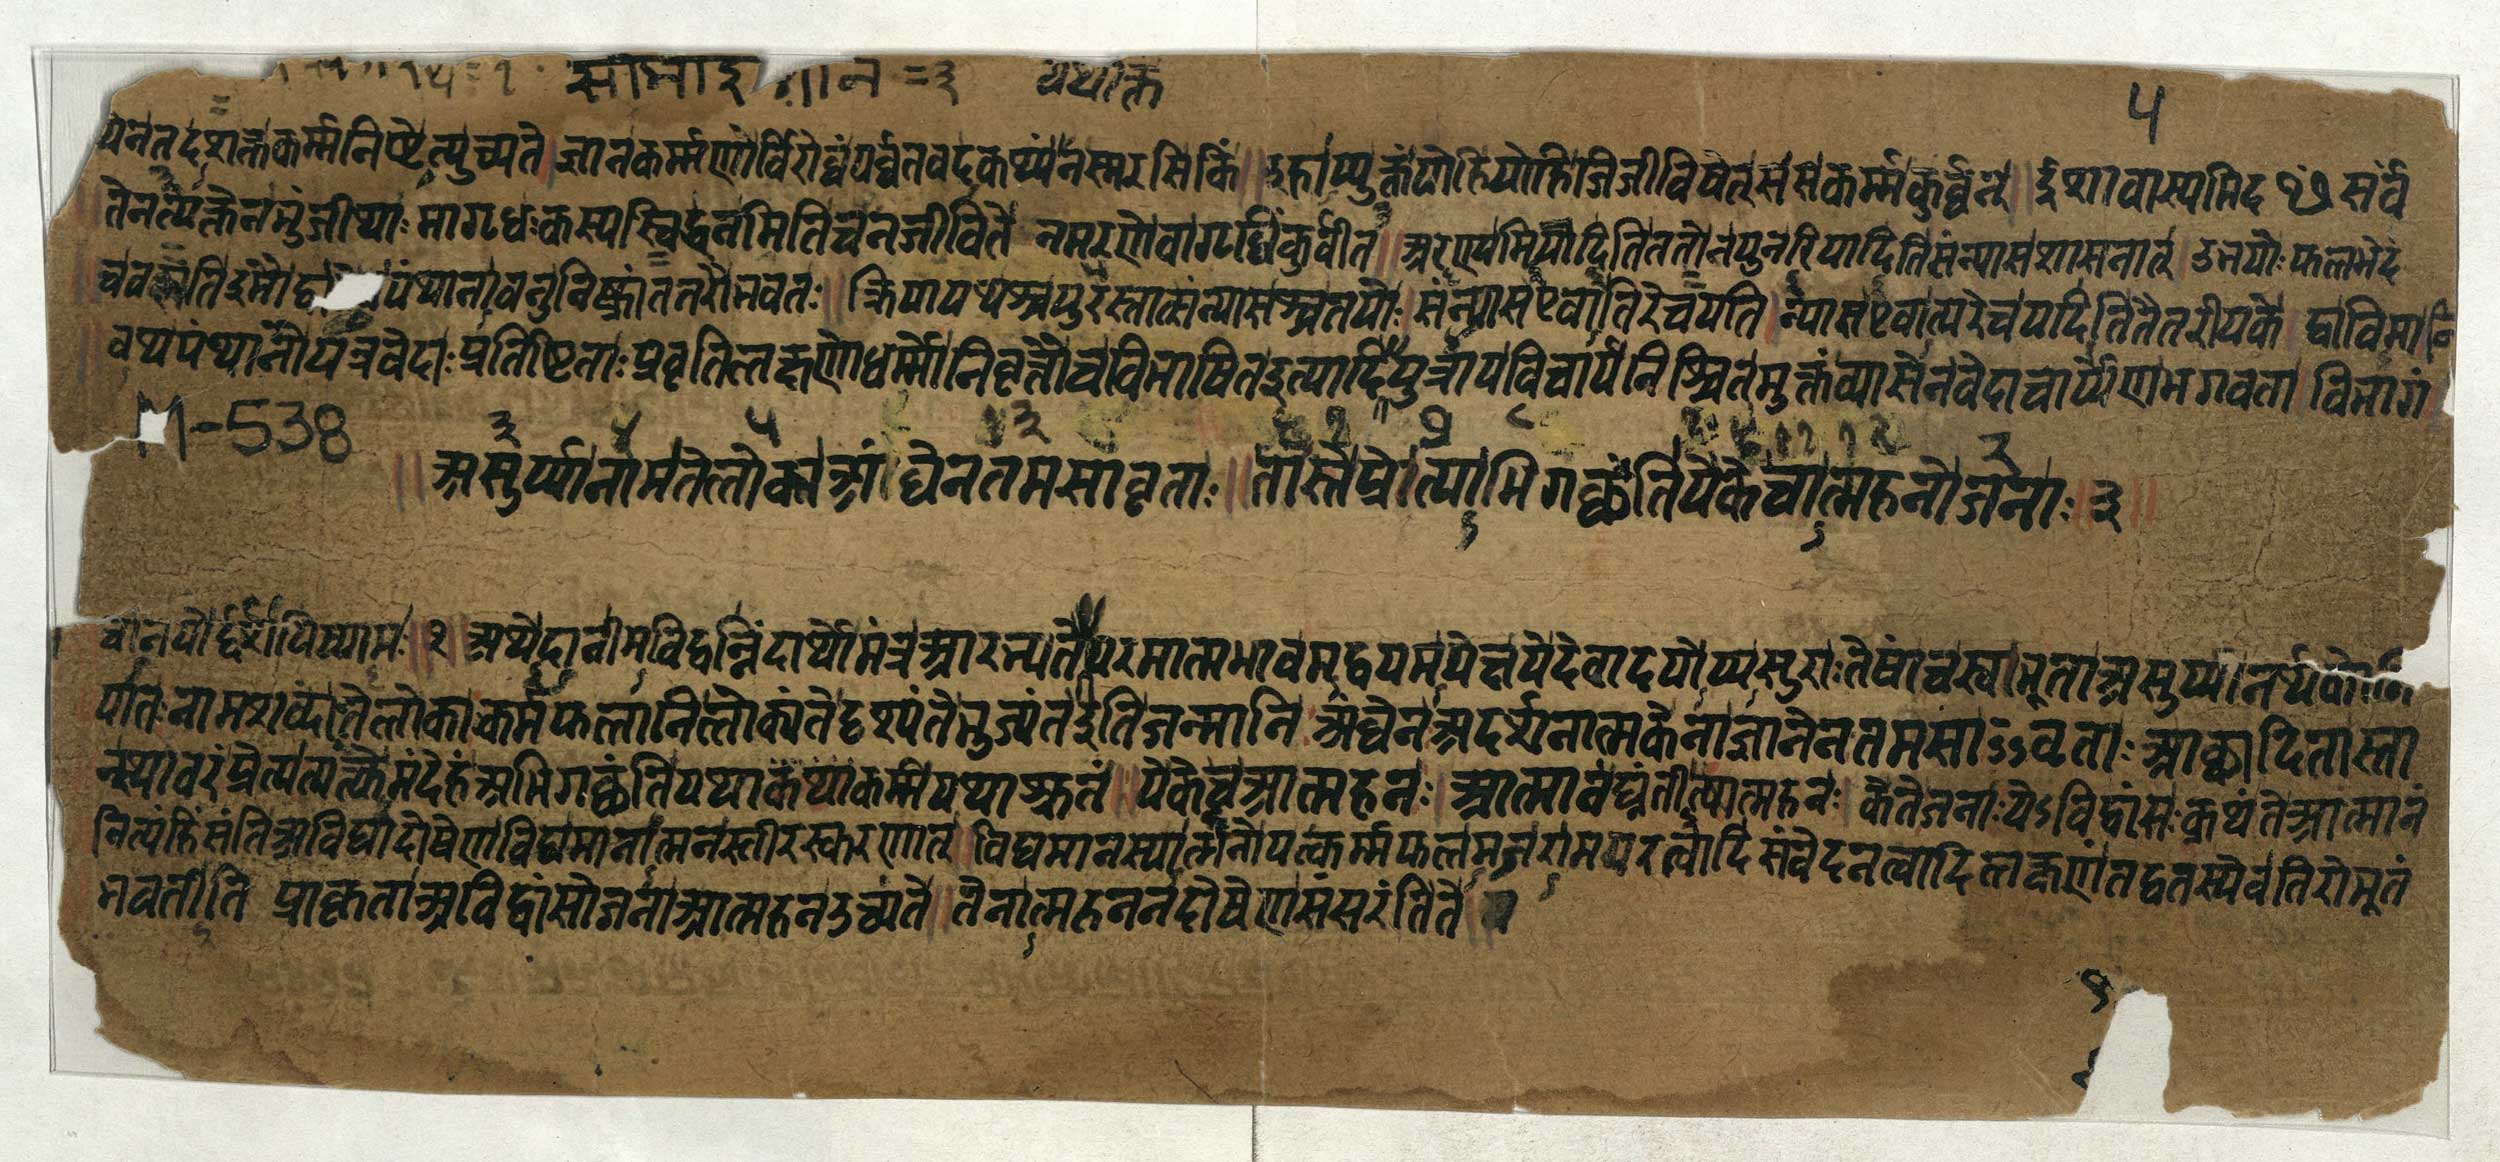 सामादृ ज्ञान = ३ यथोक्त
५
येन तदशक्तकर्म्मनिष्ठेत्युच्यते। ज्ञानकर्म्मणोर्विरोधं पर्व्वतवदकंप्यं न स्मरसि किं॥ इहाप्युक्तं यो हि जिजीविषेत् स सकर्म्म कुर्व्वन्॥ ईशावास्यमिद ꣳ सर्वं
॥ तेन त्यक्तेन भुंजीथाः मा गृधः कस्य स्विद्धनमिति च न जीविते न मरणे वा गृधिं कुर्वीत॥ अरण्यमियादिति ततो न पुनरियादिति संन्यासशासनात्। उभयोः फलभेदं
च वक्ष्यति इमौ द्वा पंथानावनुनिष्क्रांततरौ भवतः॥ क्रियापथश्च पुरस्तात्संन्यासश्च तयोः। संन्यास एवातिरेचयति। न्यास एवात्यरेचयदिति तैतरीयके। द्वाविमा
॥ वथ पंथानौ यत्र वेदाः प्रतिष्टिताः प्रवृतिलक्षणो धर्म्मो निवृत्तौ च विभाषित इत्यादि पुत्राय विचार्य निश्चितमुक्तं व्यासेन वेदाचार्य्येण भगवता। विभागं
M-538
॥ असुर्य्या नाम ते लोका अंधेन तमसावृताः॥ तांस्ते प्रेत्याभिगच्छंति ये के चात्महनो जनाः॥ ३॥
वानयोर्द्दर्शयिष्यामः॥ २॥ अथेदानीमविद्वन्निंदार्थो मंत्र आरभ्यते परमात्मभावमद्वयमपेक्ष्य देवादयोप्यसुराः तेषां च स्वभूता असुर्य्या
नामशब्दो ते लोका कर्मफलानि लोक्यंते दृश्यंते भुज्यंत इति जन्मानि अंधेन अदर्शनात्मकेनाज्ञानेन तमसाऽऽवृताः आच्छादितास्ता
न्स्थावरं प्रेत्य त्यक्त्वेमं देहं अभिगच्छंति यथाकर्म यथाश्रुतं॥ ये के च आत्महनः। आत्मानं घ्नंतीत्यात्महनः। के ते जनाः येऽविद्वांसः कथं ते आत्मानं
नित्यं हिंसंति अविद्यादोषेण विद्यमानात्मनस्तीरस्करणात्। विद्यमानस्यात्मनो यत्कर्म्मफलमजरामरत्वादिसंवेदनत्वादिलक्षणं तद्धतस्येव तिरोभूतं
भवतीति प्राकृता अविद्वांसो जना आत्महन उच्यंते॥ तेनात्महननदोषेण संसरंति ते॥